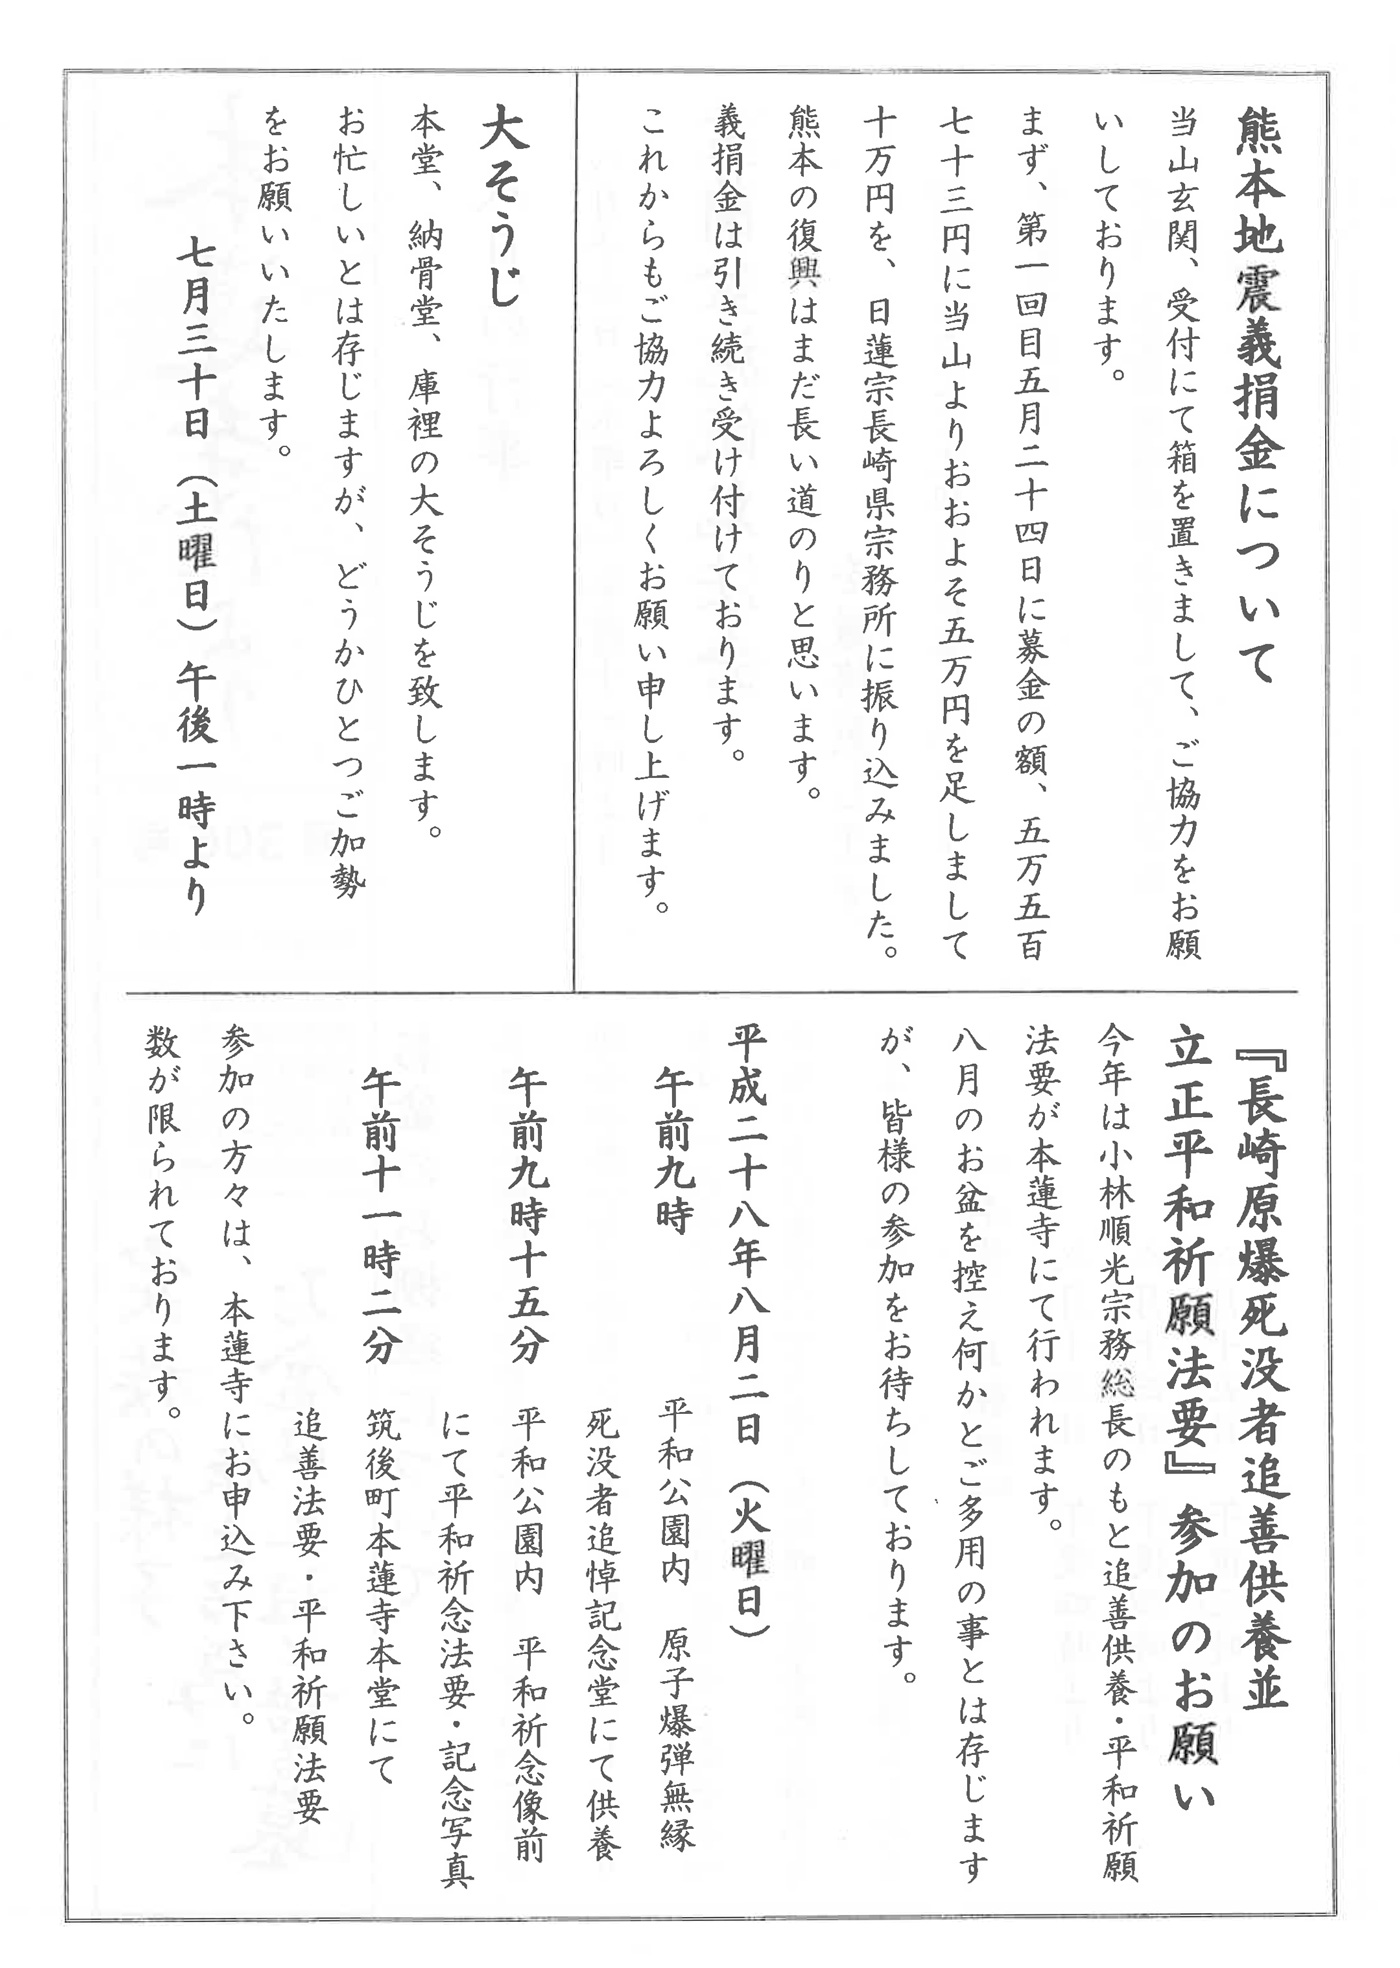 熊本地震義捐金について
当山玄関、受付にて箱を置きまして、ご協力をお願
いしております。
まず、第一回目五月二十四日に募金の額、五万五百
七十三円に当山よりおおよそ五万円を足しまして
十万円を、日蓮宗長崎県宗務所に振り込みました。
熊本の復興はまだ長い道のりと思います。
義捐金は引き続き受け付けております。
これからもご協力よろしくお願い申し上げます。
大そうじ
本堂、納骨堂、庫裡の大そうじを致します。
お忙しいとは存じますが、どうかひとつご加勢
をお願いいたします。
七月三十日（土曜日）午後一時より
『長崎原爆死没者追善供養並
立正平和祈願法要』参加のお願い
今年は小林順光宗務総長のもと追善供養・平和祈願
法要が本蓮寺にて行われます。
八月のお盆を控え何かとご多用の事とは存じます
が、皆様の参加をお待ちしております。
平成二十八年八月二日（火曜日）
午前九時　平和公園内　原子爆弾無縁
死没者追悼記念堂にて供養
午前九時十五分　平和公園内　平和祈念像前
にて平和祈念法要・記念写真
午前十一時二分　筑後町本蓮寺本堂にて
追善法要・平和祈願法要
参加の方々は、本蓮寺にお申込み下さい。
数が限られております。